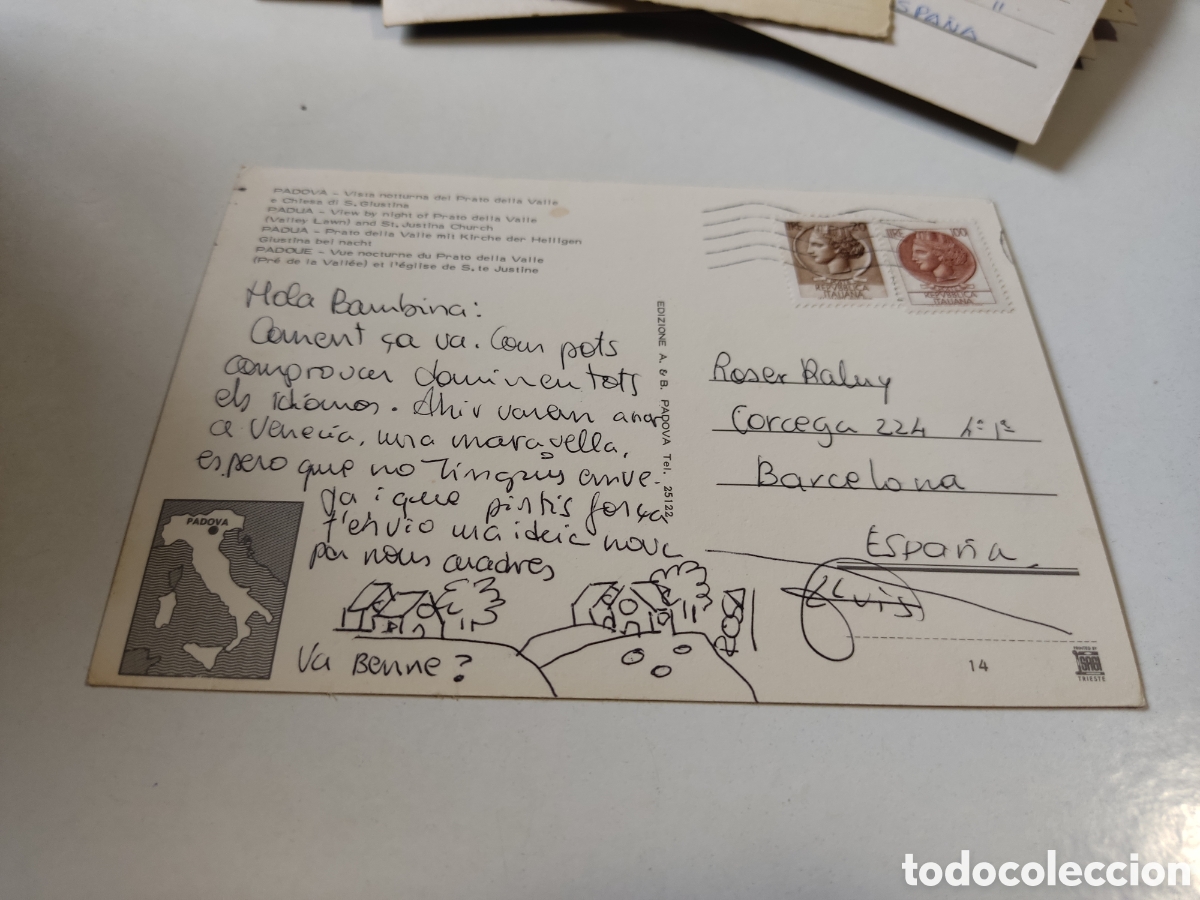 ESPAÑA
PADOVA - Vista notturna del Prato della Valle
e Chiesa di S. Giustina
PADUA - View by night of Prato della Valle
(Valley Lawn) and St. Justina Church
PADUA - Prato della Valle mit Kirche der Heiligen
Giustina bei nacht
PADOUE - Vue nocturne du Prato della Valle
(Pré de la Vallée) et l'église de S. te Justine
Hola Bambina:
Coment ça va. Com pots
comprovar dominen tots
els idiomes. Ahir varem anar
a Venecia, una maravella,
espero que no tinguis enve-
ja i que pintis força
t'envio una ideia nova
per nous cuadres
Va Benne?
PADOVA
EDIZIONE A. & B. PADOVA Tel. 25122
REPVBBLICA
ITALIANA
100
REPVBBLICA
ITALIANA
Roser
Corcega 224 4º 1ª
Barcelona
España
Lluis
14
SABI
TRIESTE
todocoleccion